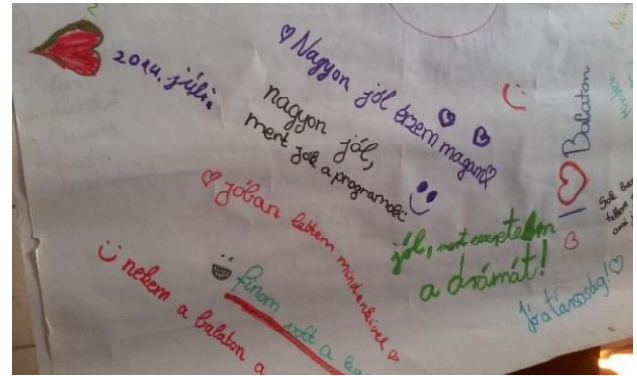 2014. júli.
Nagyon jól érzem magam
nagyon jól,
mert jók a programok
I Balaton
jóban lettem mindenkivel
jól, mert szeretem
a drámát!
Jó a társaság!
finom volt a
nekem a balaton a
Sok